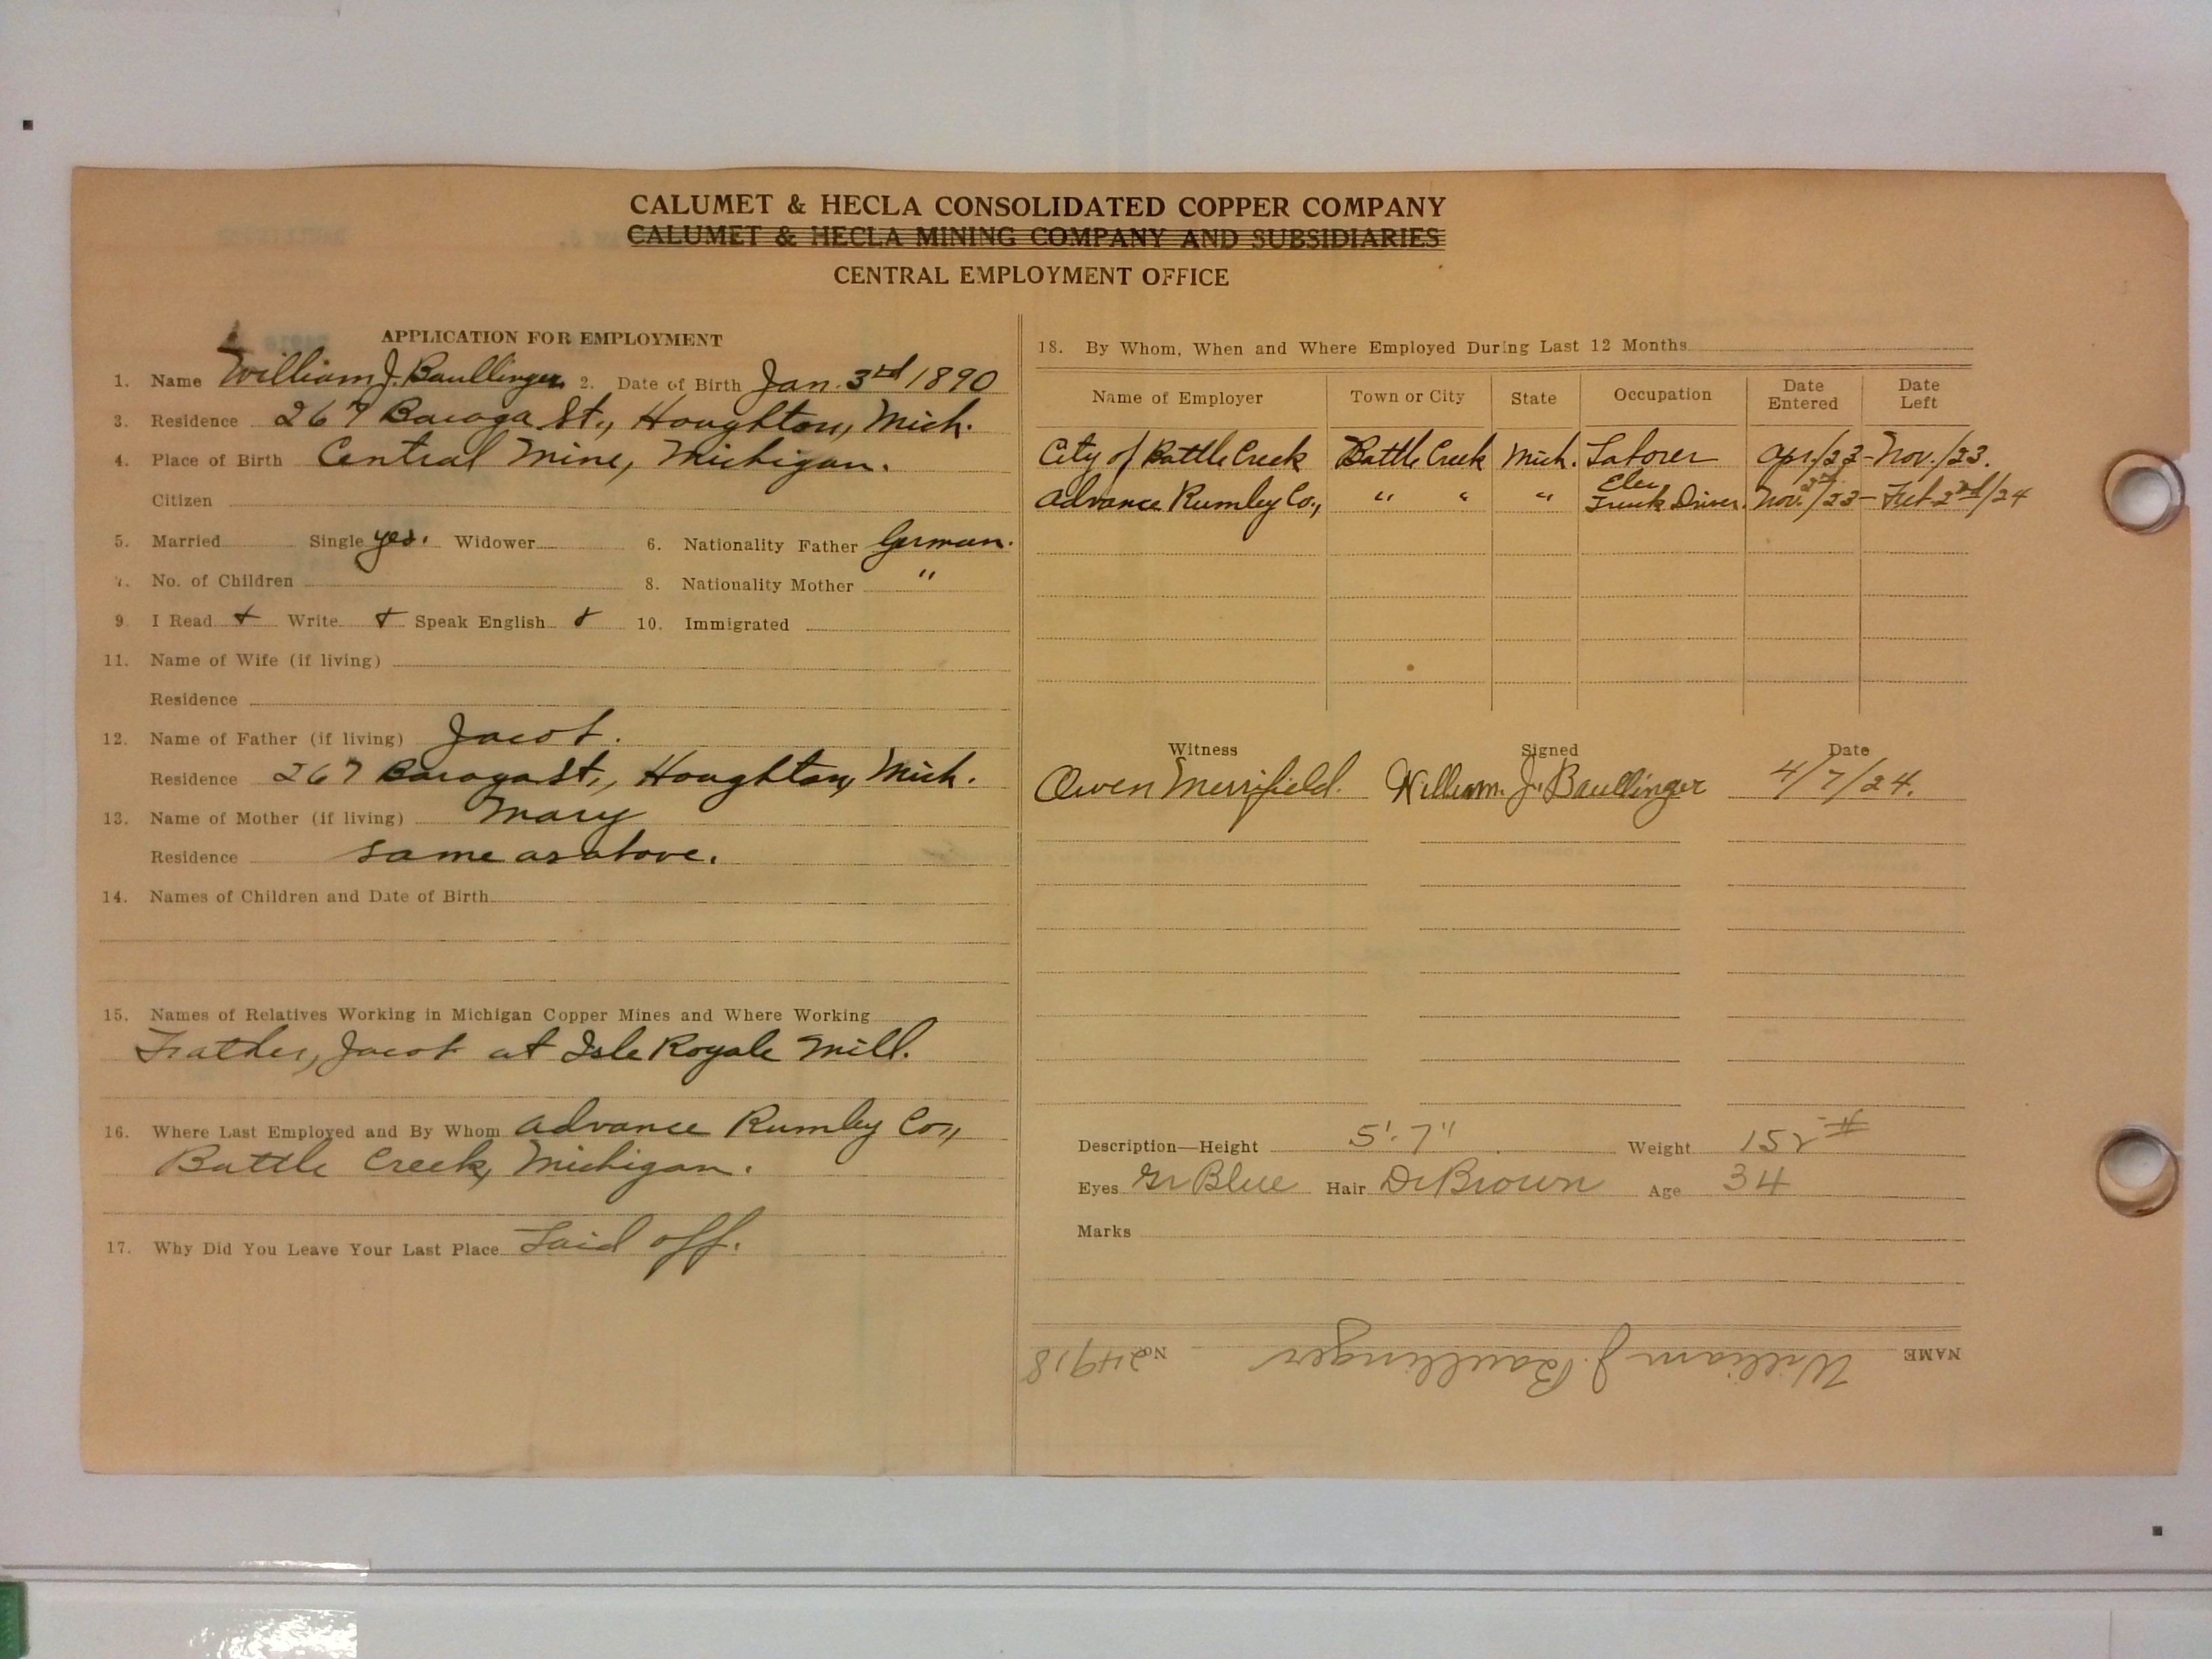 CALUMET & HECLA CONSOLIDATED COPPER COMPANY
CALUMET & HECLA MINING COMPANY AND SUBSIDIARIES
CENTRAL EMPLOYMENT OFFICE
APPLICATION FOR EMPLOYMENT
1. Name William J. Baullinger 2. Date of Birth Jan. 3rd 1890
3. Residence 267 Baraga St., Houghton, Mich.
4. Place of Birth Central Mine, Michigan.
Citizen
5. Married Single yes. Widower 6. Nationality Father German.
7. No. of Children 8. Nationality Mother "
9. I Read + Write + Speak English + 10. Immigrated
11. Name of Wife (if living)
Residence
12. Name of Father (if living) Jacob.
Residence 267 Baraga St., Houghton, Mich.
13. Name of Mother (if living) Mary
Residence same as above.
14. Names of Children and Date of Birth
15. Names of Relatives Working in Michigan Copper Mines and Where Working
Father, Jacob at Isle Royale Mill.
16. Where Last Employed and By Whom Advance Rumley Co.,
Battle Creek, Michigan.
17. Why Did You Leave Your Last Place Laid off.
18. By Whom, When and Where Employed During Last 12 Months
Name of Employer Town or City State Occupation Date Entered Date Left
City of Battle Creek Battle Creek Mich. Laborer Apr/23 - Nov./23.
Advance Rumley Co., " " " Elec Truck Driver. Nov. /23 - Feb 2nd/24
Witness Signed Date
Owen Merrifield. William. J. Baullinger 4/7/24.
Description—Height 5'-7" Weight 152 #
Eyes Gr Blue Hair Dr Brown Age 34
Marks
NAME William J. Baullinger No. 24918